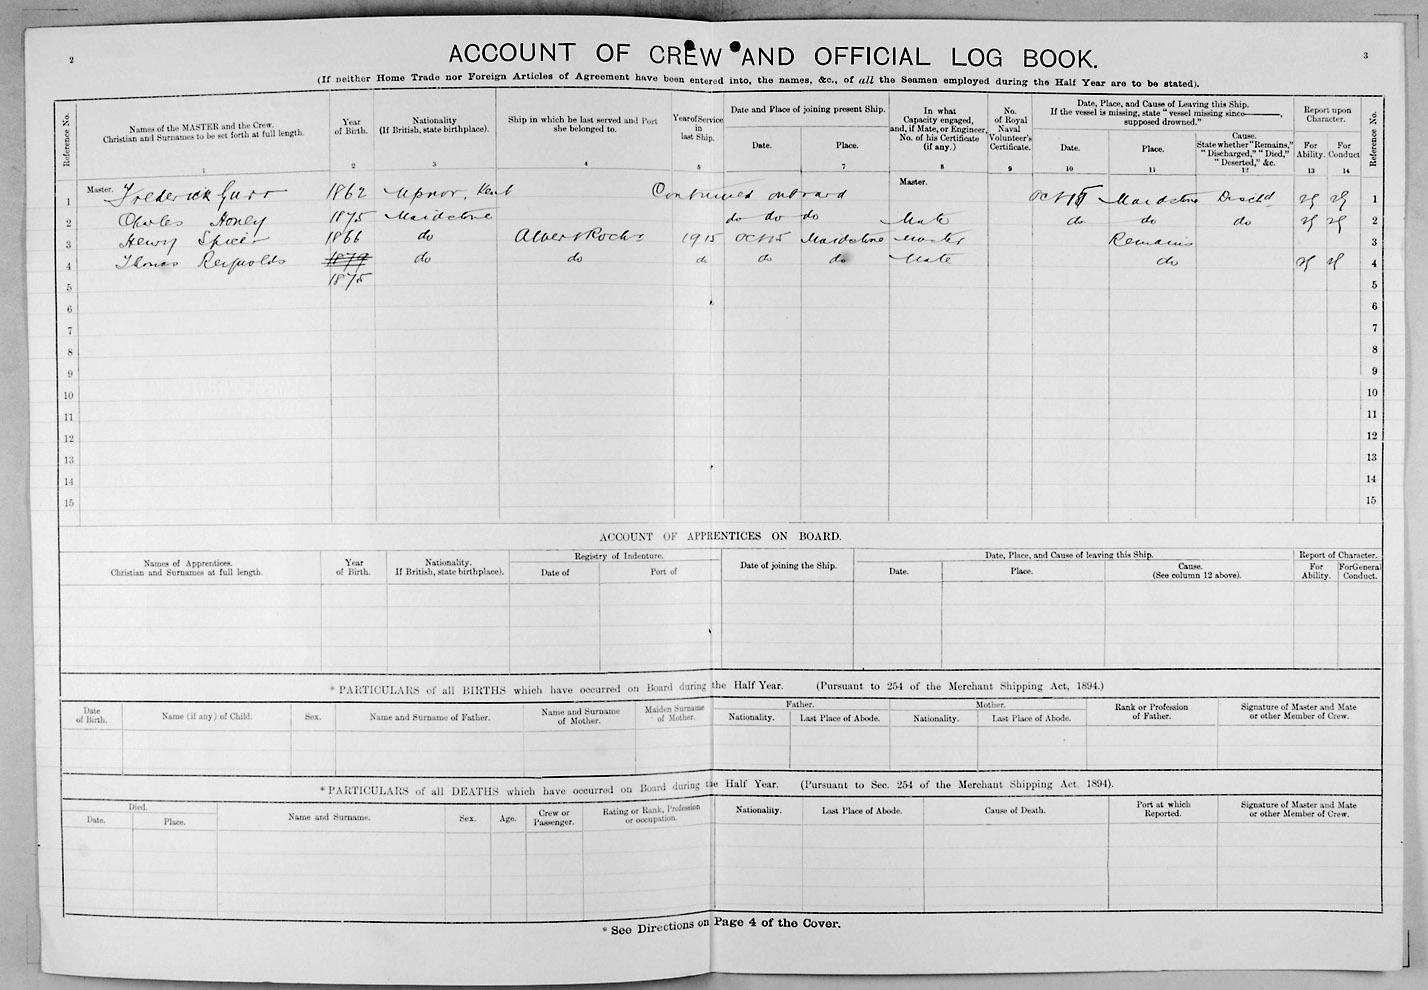 2
3
ACCOUNT OF CREW AND OFFICIAL LOG BOOK.
(If neither Home Trade nor Foreign Articles of Agreement have been entered into, the names, &c., of all the Seamen employed during the Half Year are to be stated).
Reference No.
Names of the MASTER and the Crew.
Christian and Surnames to be set forth at full length.
1
Year
of Birth.
2
Nationality
(If British, state birthplace).
3
Ship in which he last served and Port
she belonged to.
4
Year of Service
in
last Ship.
5
Date and Place of joining present Ship.
Date.
Place.
7
In what
Capacity engaged,
and, if Mate, or Engineer,
No. of his Certificate
(if any.)
8
No.
of Royal
Naval
Volunteer's
Certificate.
9
Date, Place, and Cause of Leaving this Ship.
If the vessel is missing, state "vessel missing since———,
supposed drowned."
Date.
10
Place.
11
Cause.
State whether "Remains,"
"Discharged," "Died,"
"Deserted," &c.
12
Report upon
Character.
For
Ability.
13
For
Conduct
14
Reference No.
1 Master. Frederick Gurr 1862 Upnor, Kent Continued onboard Master. Oct 15 Maidstone Disch'd VG VG 1
2 Charles Honey 1875 Maidstone do do do Mate do do do VG VG 2
3 Henry Spicer 1866 do Albert Roch 1915 Oct 15 Maidstone Master Remains 3
4 Thomas Reynolds 1879 do do do do do Mate do VG VG 4
5 1875 5
6 6
7 7
8 8
9 9
10 10
11 11
12 12
13 13
14 14
15 15
ACCOUNT OF APPRENTICES ON BOARD.
Names of Apprentices.
Christian and Surnames at full length.
Year
of Birth.
Nationality.
(If British, state birthplace).
Registry of Indenture.
Date of
Port of
Date of joining the Ship.
Date, Place, and Cause of leaving this Ship.
Date.
Place.
Cause.
(See column 12 above).
Report of Character.
For
Ability.
For General
Conduct.
* PARTICULARS of all BIRTHS which have occurred on Board during the Half Year. (Pursuant to 254 of the Merchant Shipping Act, 1894.)
Date
of Birth.
Name (if any) of Child.
Sex.
Name and Surname of Father.
Name and Surname
of Mother.
Maiden Surname
of Mother.
Father.
Nationality.
Last Place of Abode.
Mother.
Nationality.
Last Place of Abode.
Rank or Profession
of Father.
Signature of Master and Mate
or other Member of Crew.
* PARTICULARS of all DEATHS which have occurred on Board during the Half Year. (Pursuant to Sec. 254 of the Merchant Shipping Act, 1894).
Died.
Date.
Place.
Name and Surname.
Sex.
Age.
Crew or
Passenger.
Rating or Rank, Profession
or occupation.
Nationality.
Last Place of Abode.
Cause of Death.
Port at which
Reported.
Signature of Master and Mate
or other Member of Crew.
* See Directions on Page 4 of the Cover.